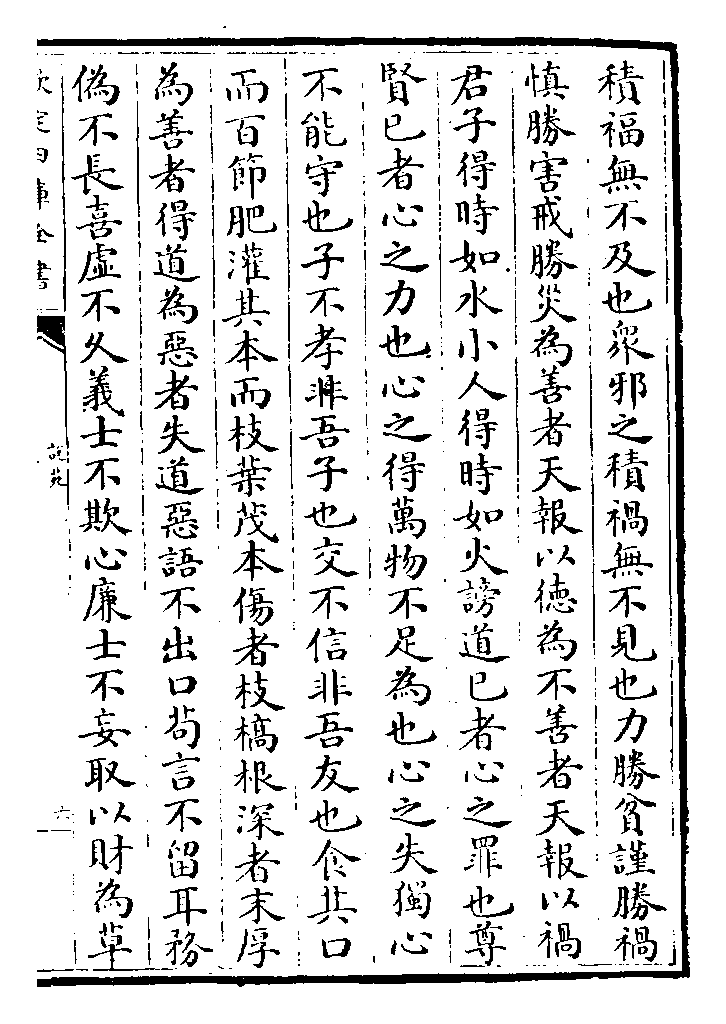 積福無不及也衆邪之積禍無不見也力勝貧謹勝禍
慎勝害戒勝災為善者天報以徳為不善者天報以禍
君子得時如水小人得時如火謗道已者心之罪也尊
賢已者心之力也心之得萬物不足為也心之失獨心
不能守也子不孝非吾子也交不信非吾友也食其口
而百節肥灌其本而枝葉茂本傷者枝槁根深者末厚
為善者得道為惡者失道惡語不出口茍言不留耳務
偽不長喜虛不久義士不欺心廉士不妄取以財為草
欽定四庫全書
說苑
六